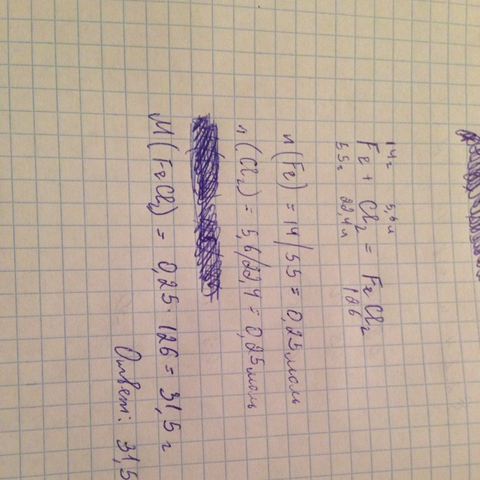 14г 5,6л
Fe + Cl2 = FeCl2
55г 22,4л 126
n(Fe) = 14/55 = 0,25моль
n(Cl2) = 5,6/22,4 = 0,25моль
M(FeCl2) = 0,25·126 = 31,5 г
Ответ: 31,5